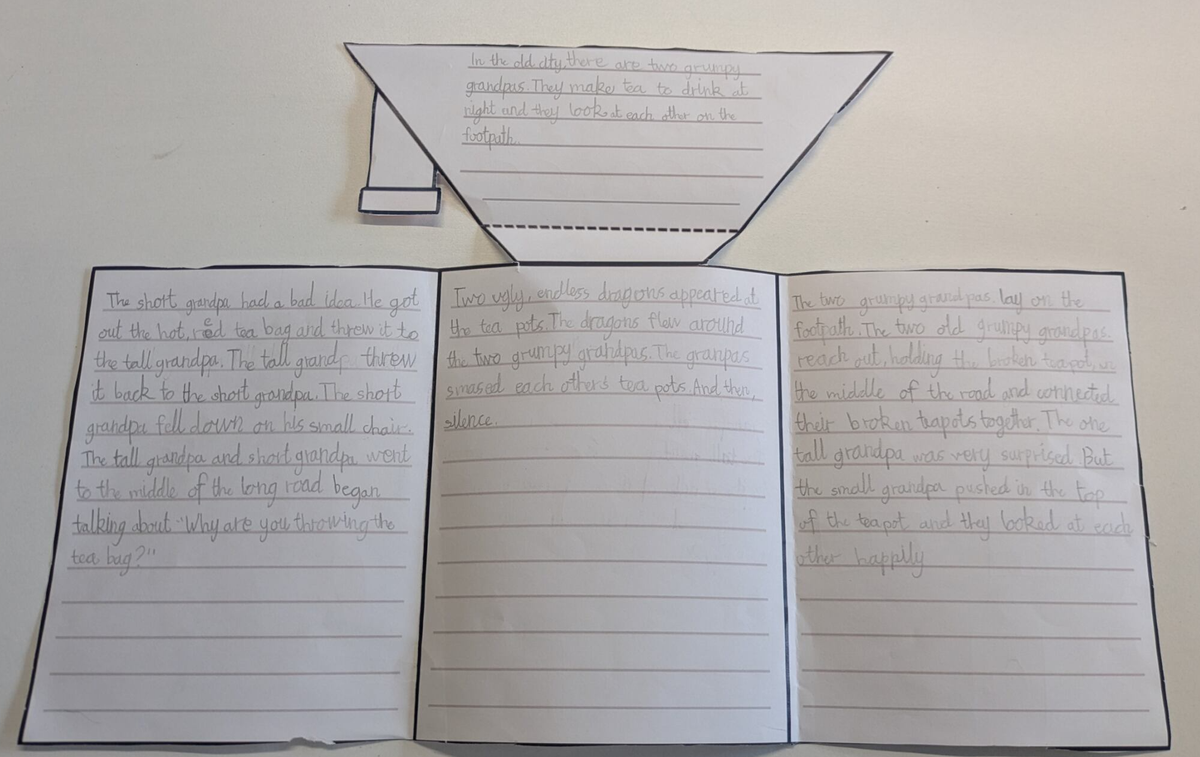 In the old city, there are two grumpy
grandpas. They make tea to drink at
night and they look at each other on the
footpath.
The short grandpa had a bad idea. He got
out the hot, red tea bag and threw it to
the tall grandpa. The tall grandp threw
it back to the short grandpa. The short
grandpa fell down on his small chair.
The tall grandpa and short grandpa went
to the middle of the long road began
talking about "Why are you throwing the
tea bag?"
Two ugly, endless dragons appeared at
the tea pots. The dragons flew around
the two grumpy grandpas. The granpas
smased each others tea pots. And then,
silence.
The two grumpy grandpas lay on the
footpath. The two old grumpy grandpas.
reach out, holding the broken teapot, in
the middle of the road and connected
their broken teapots together. The one
tall grandpa was very surprised. But
the small grandpa pushed in the top
of the teapot and they looked at each
other happily